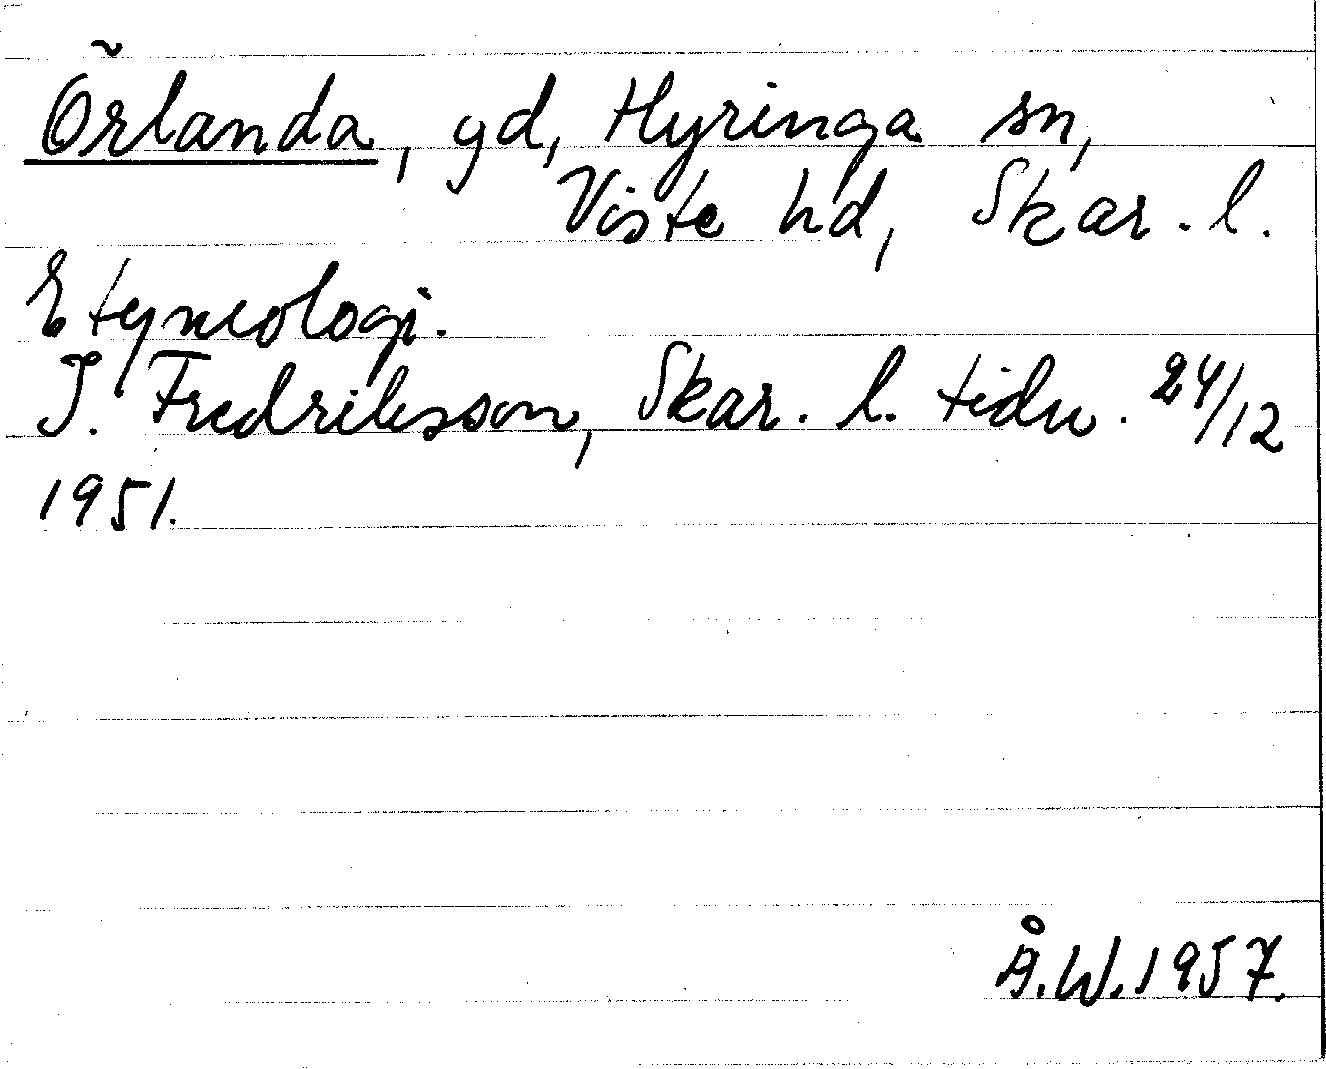 Örlanda, gd, Hyringa sn,
Viste hd, Skar. l.
Etymologi.
J. Fredriksson, Skar. l. tidn. 24/12
1951.
Å.W.1957.